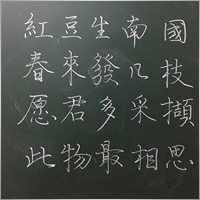 紅豆生南國
春來發几枝
愿君多采擷
此物最相思